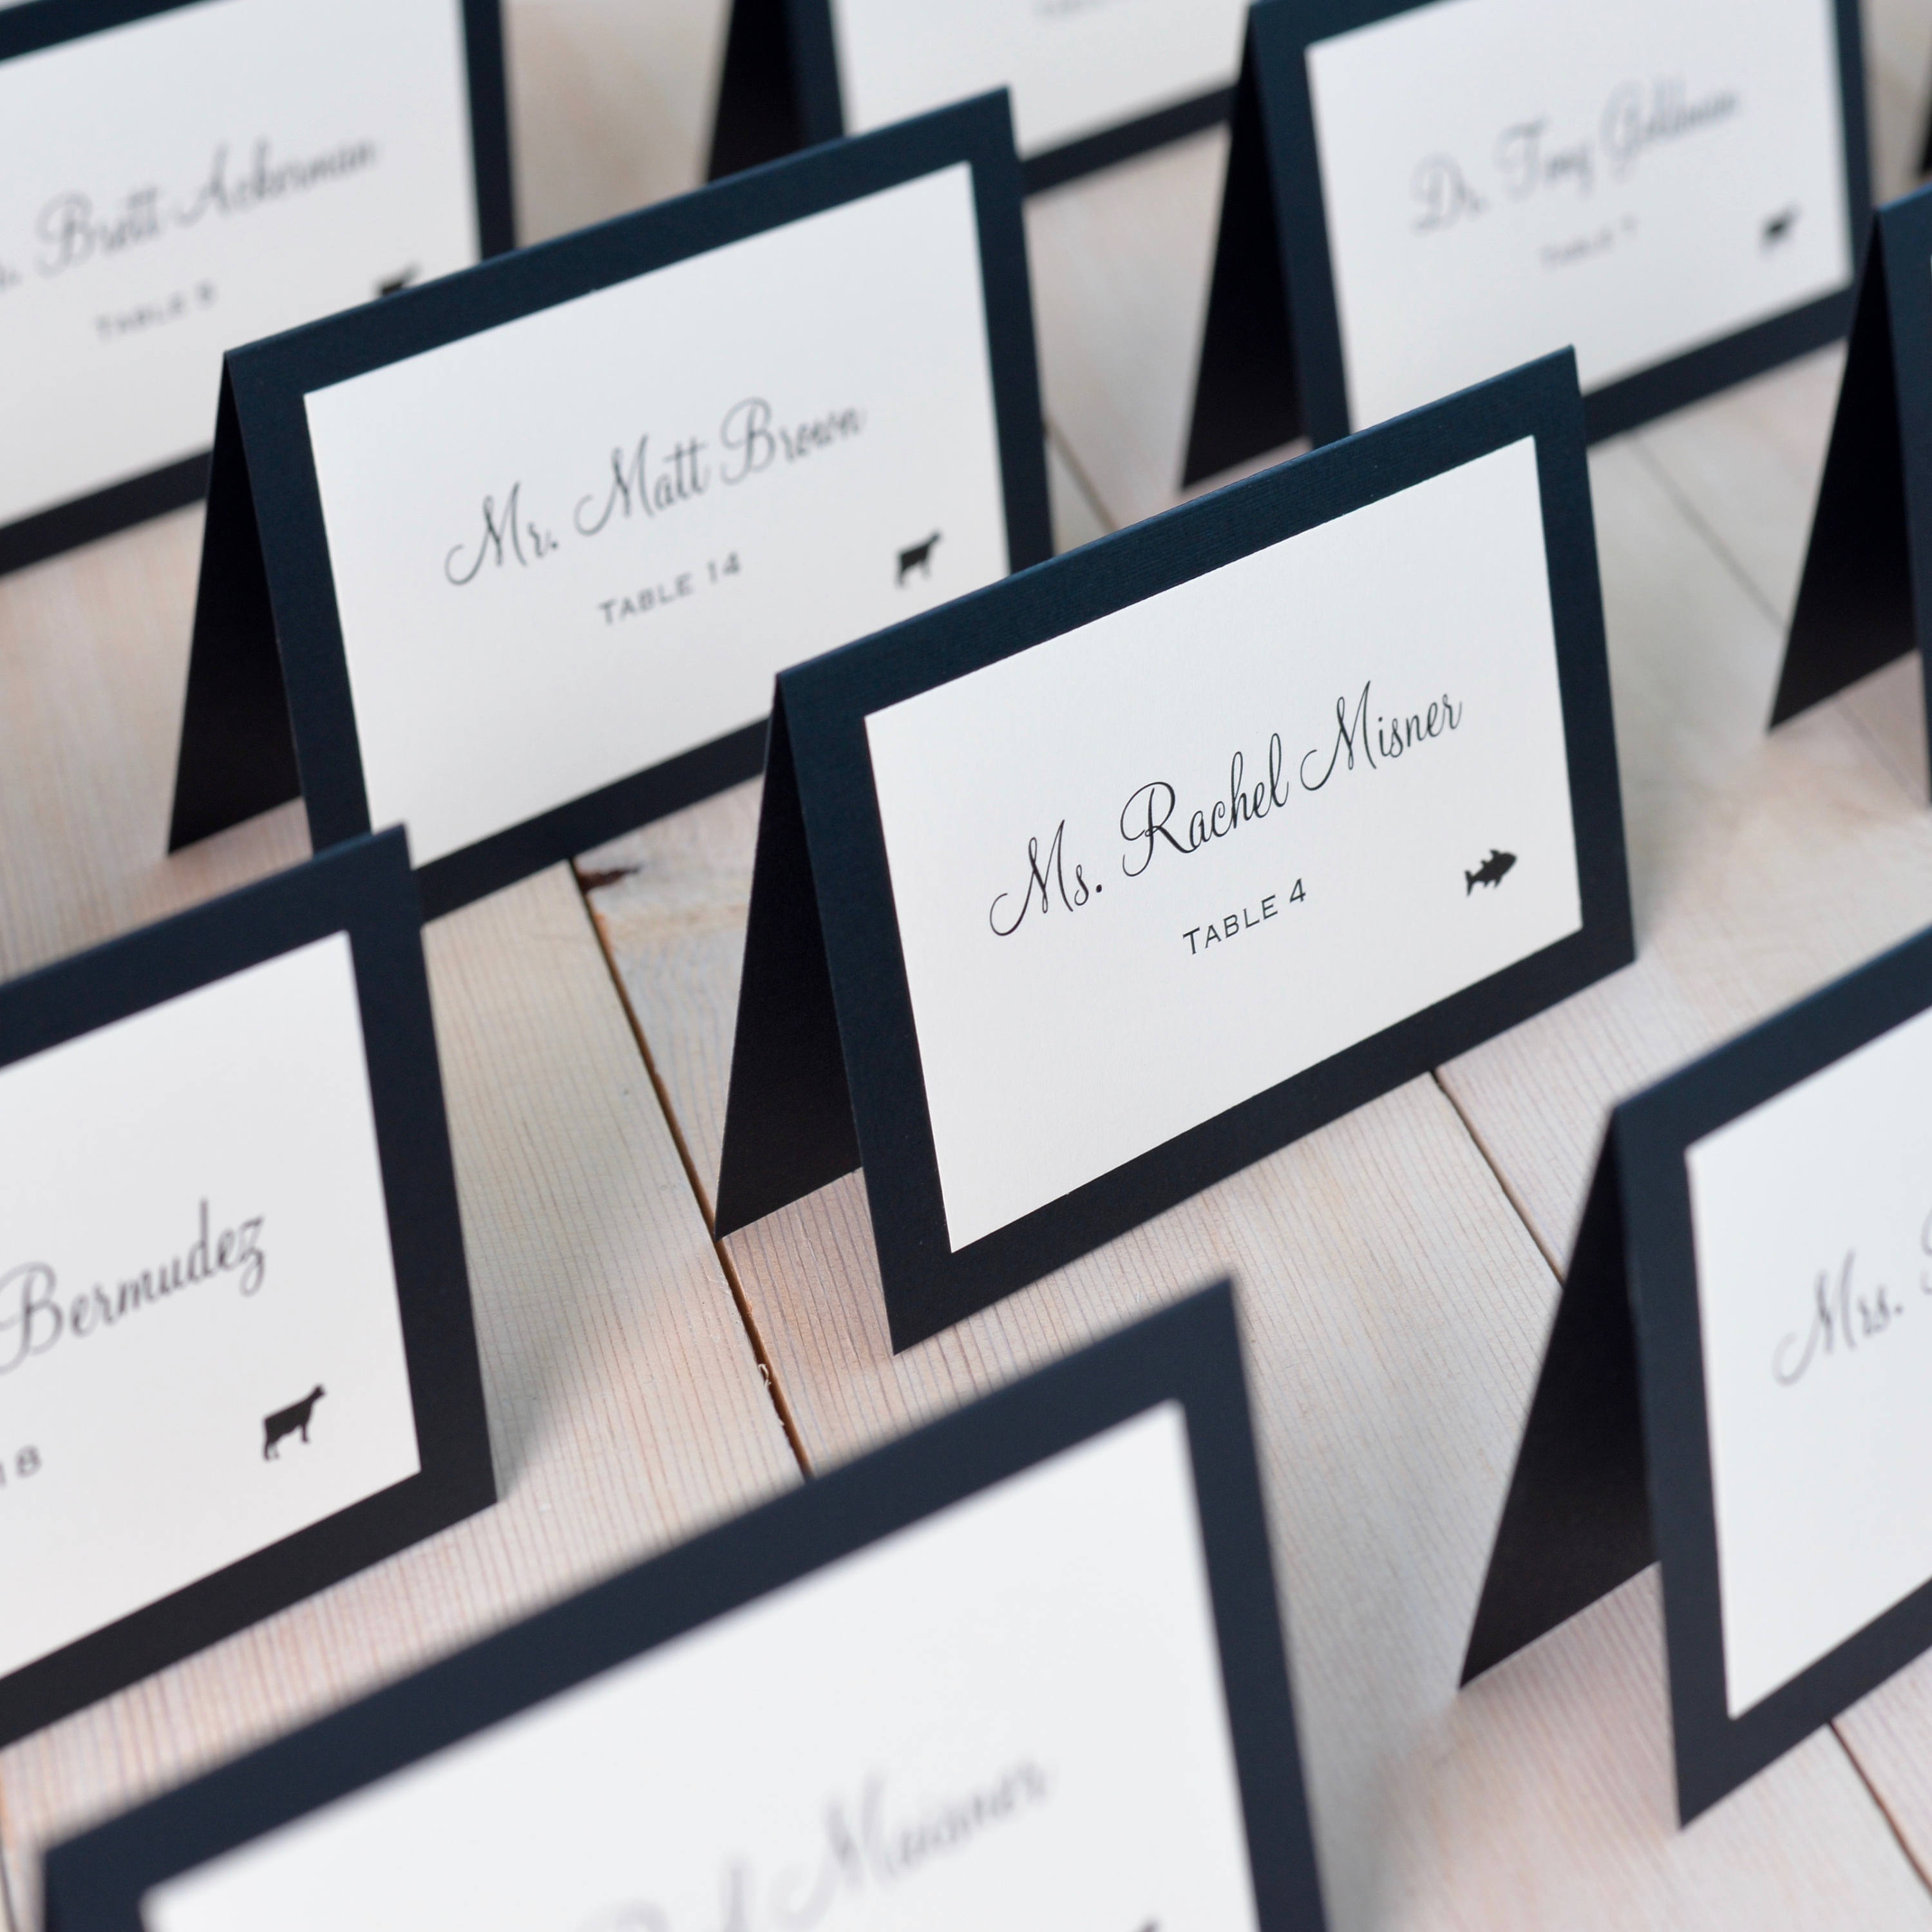 Brett Ackerman
TABLE
Dr. Tony Goldman
TABLE
Mr. Matt Brown
TABLE 14
Ms. Rachel Misner
TABLE 4
Bermudez
18
Mrs.